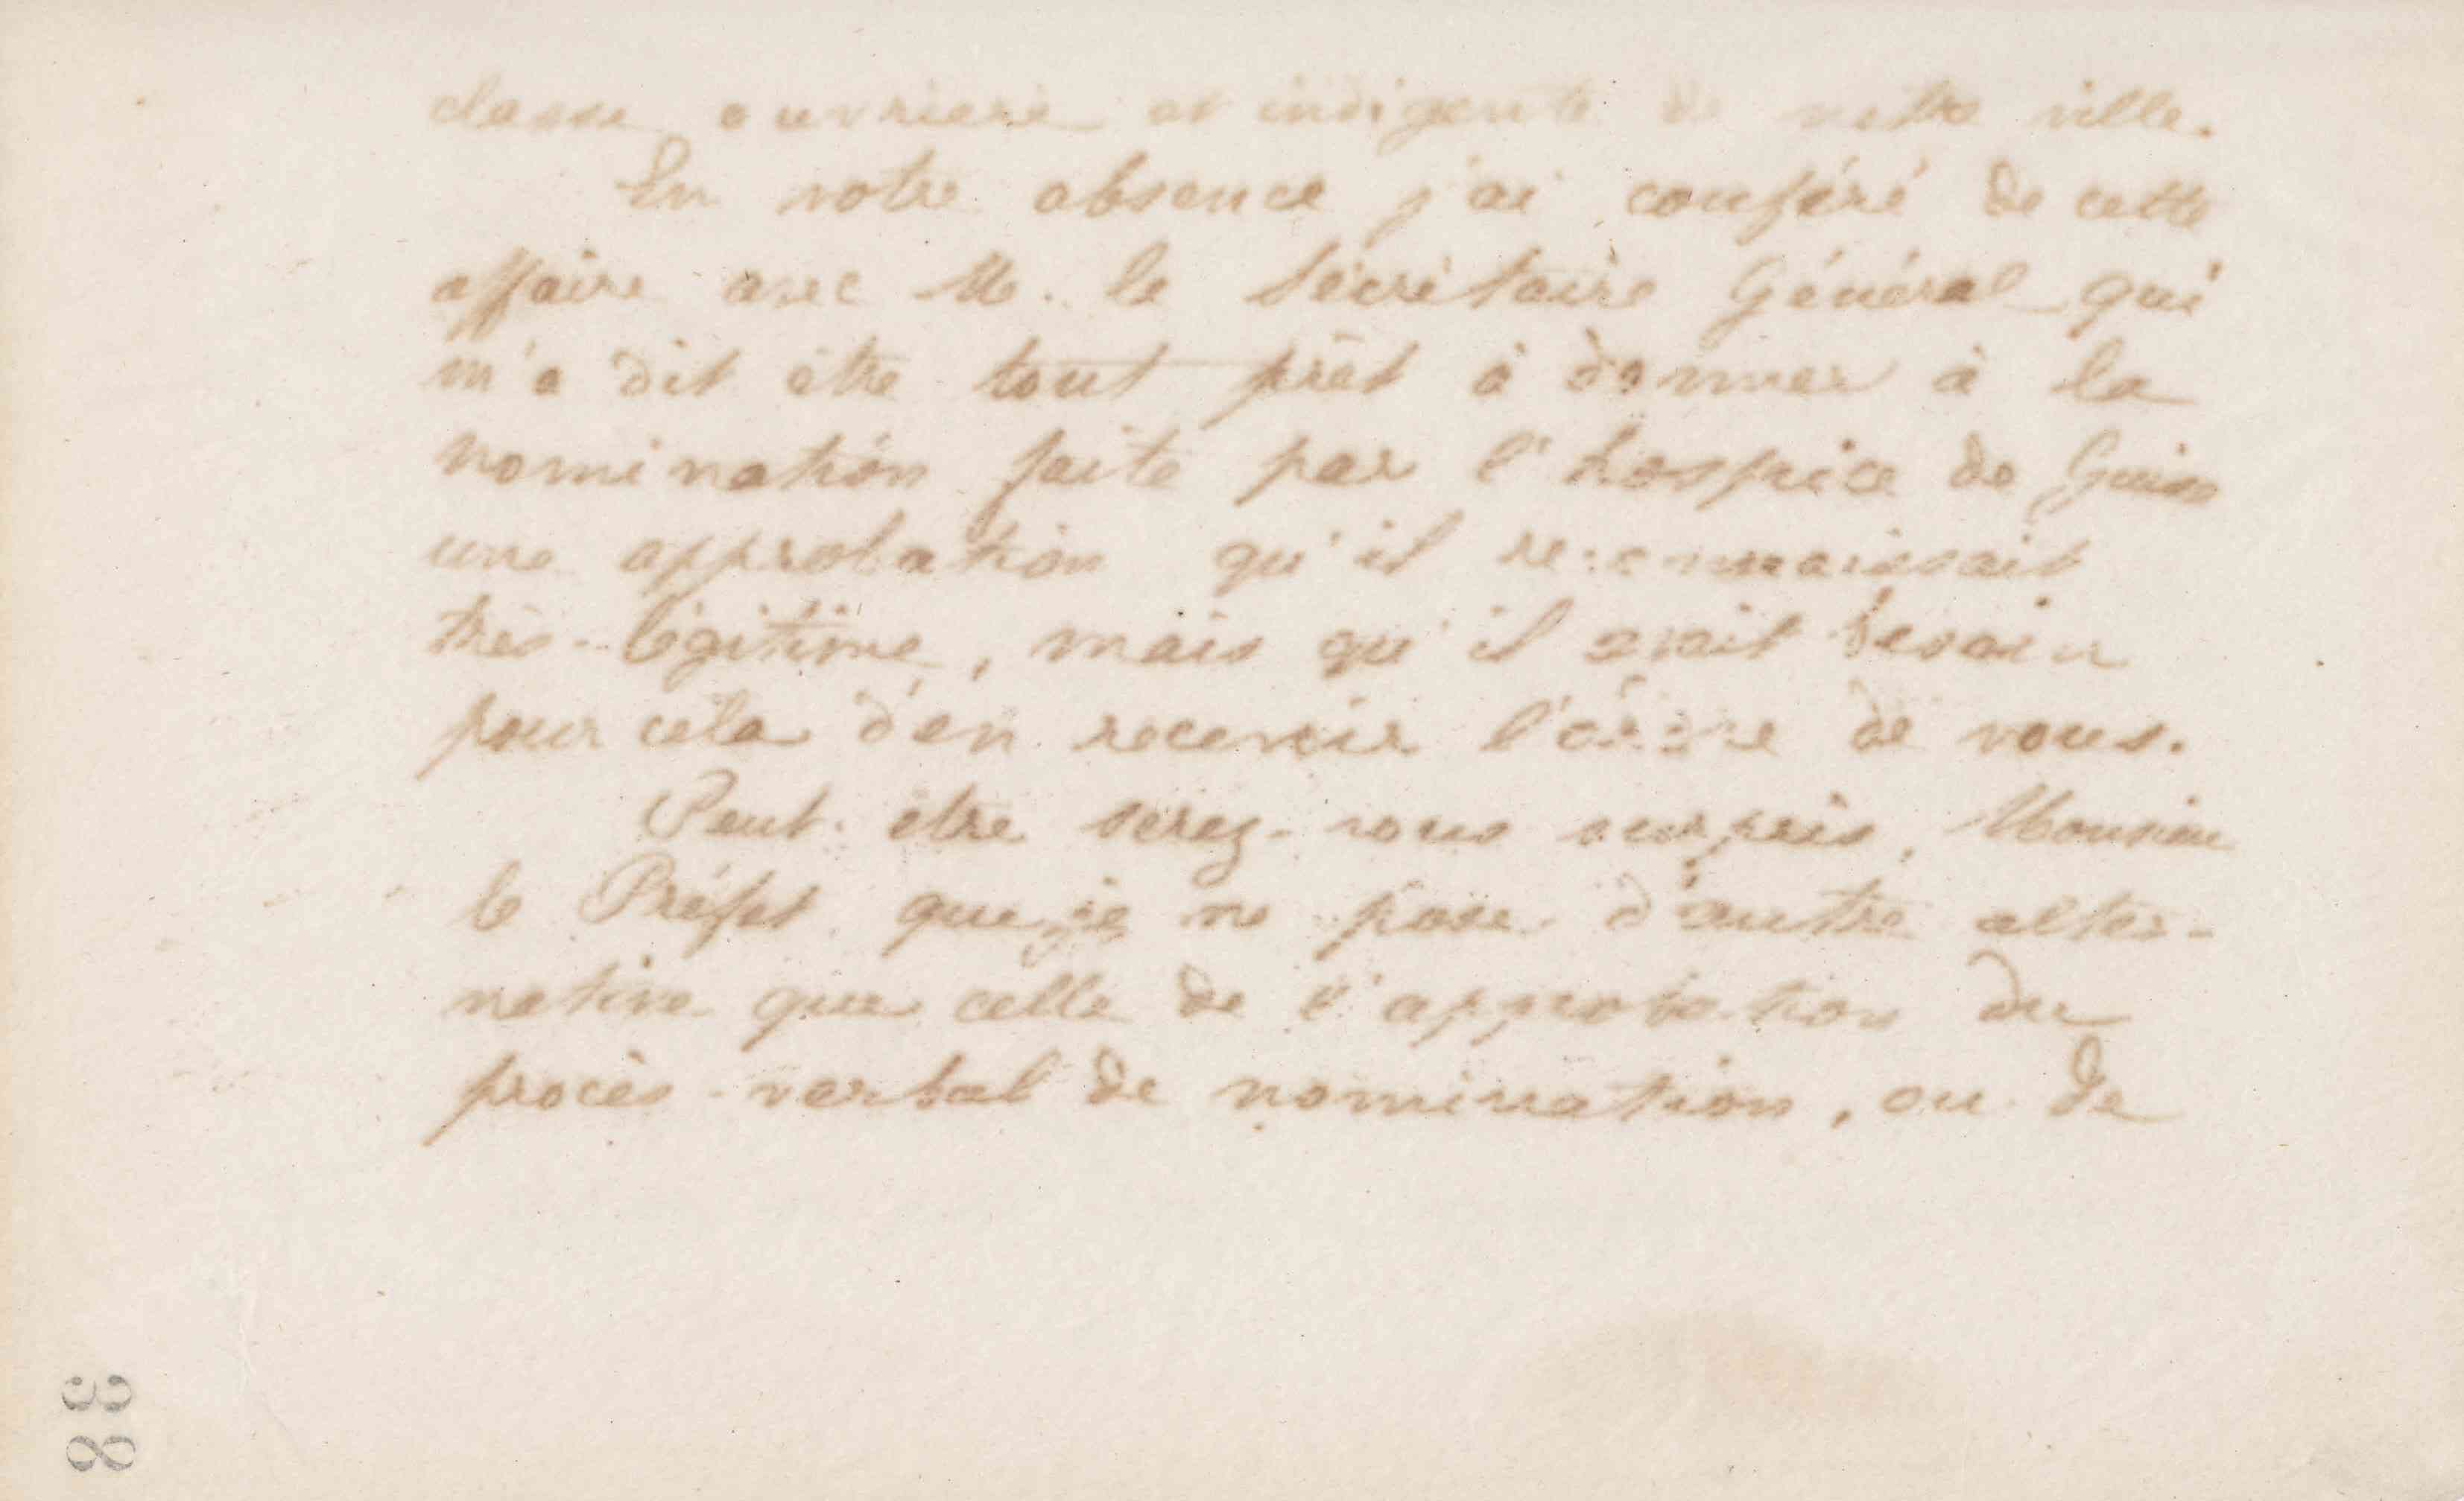 classe ouvrière et indigente de notre ville.
En votre absence j'ai conféré de cette
affaire avec M. le Secrétaire Général qui
m'a dit être tout prêt à donner à la
nomination faite par l'hospice de Guise
une approbation qu'il reconnaissait
très-légitime, mais qu'il avait besoin
pour cela d'en recevoir l'ordre de vous.
Peut-être serez-vous surpris, Monsieur
le Préfet que je ne pose d'autre alter-
native que celle de l'approbation du
procès-verbal de nomination, ou de
38